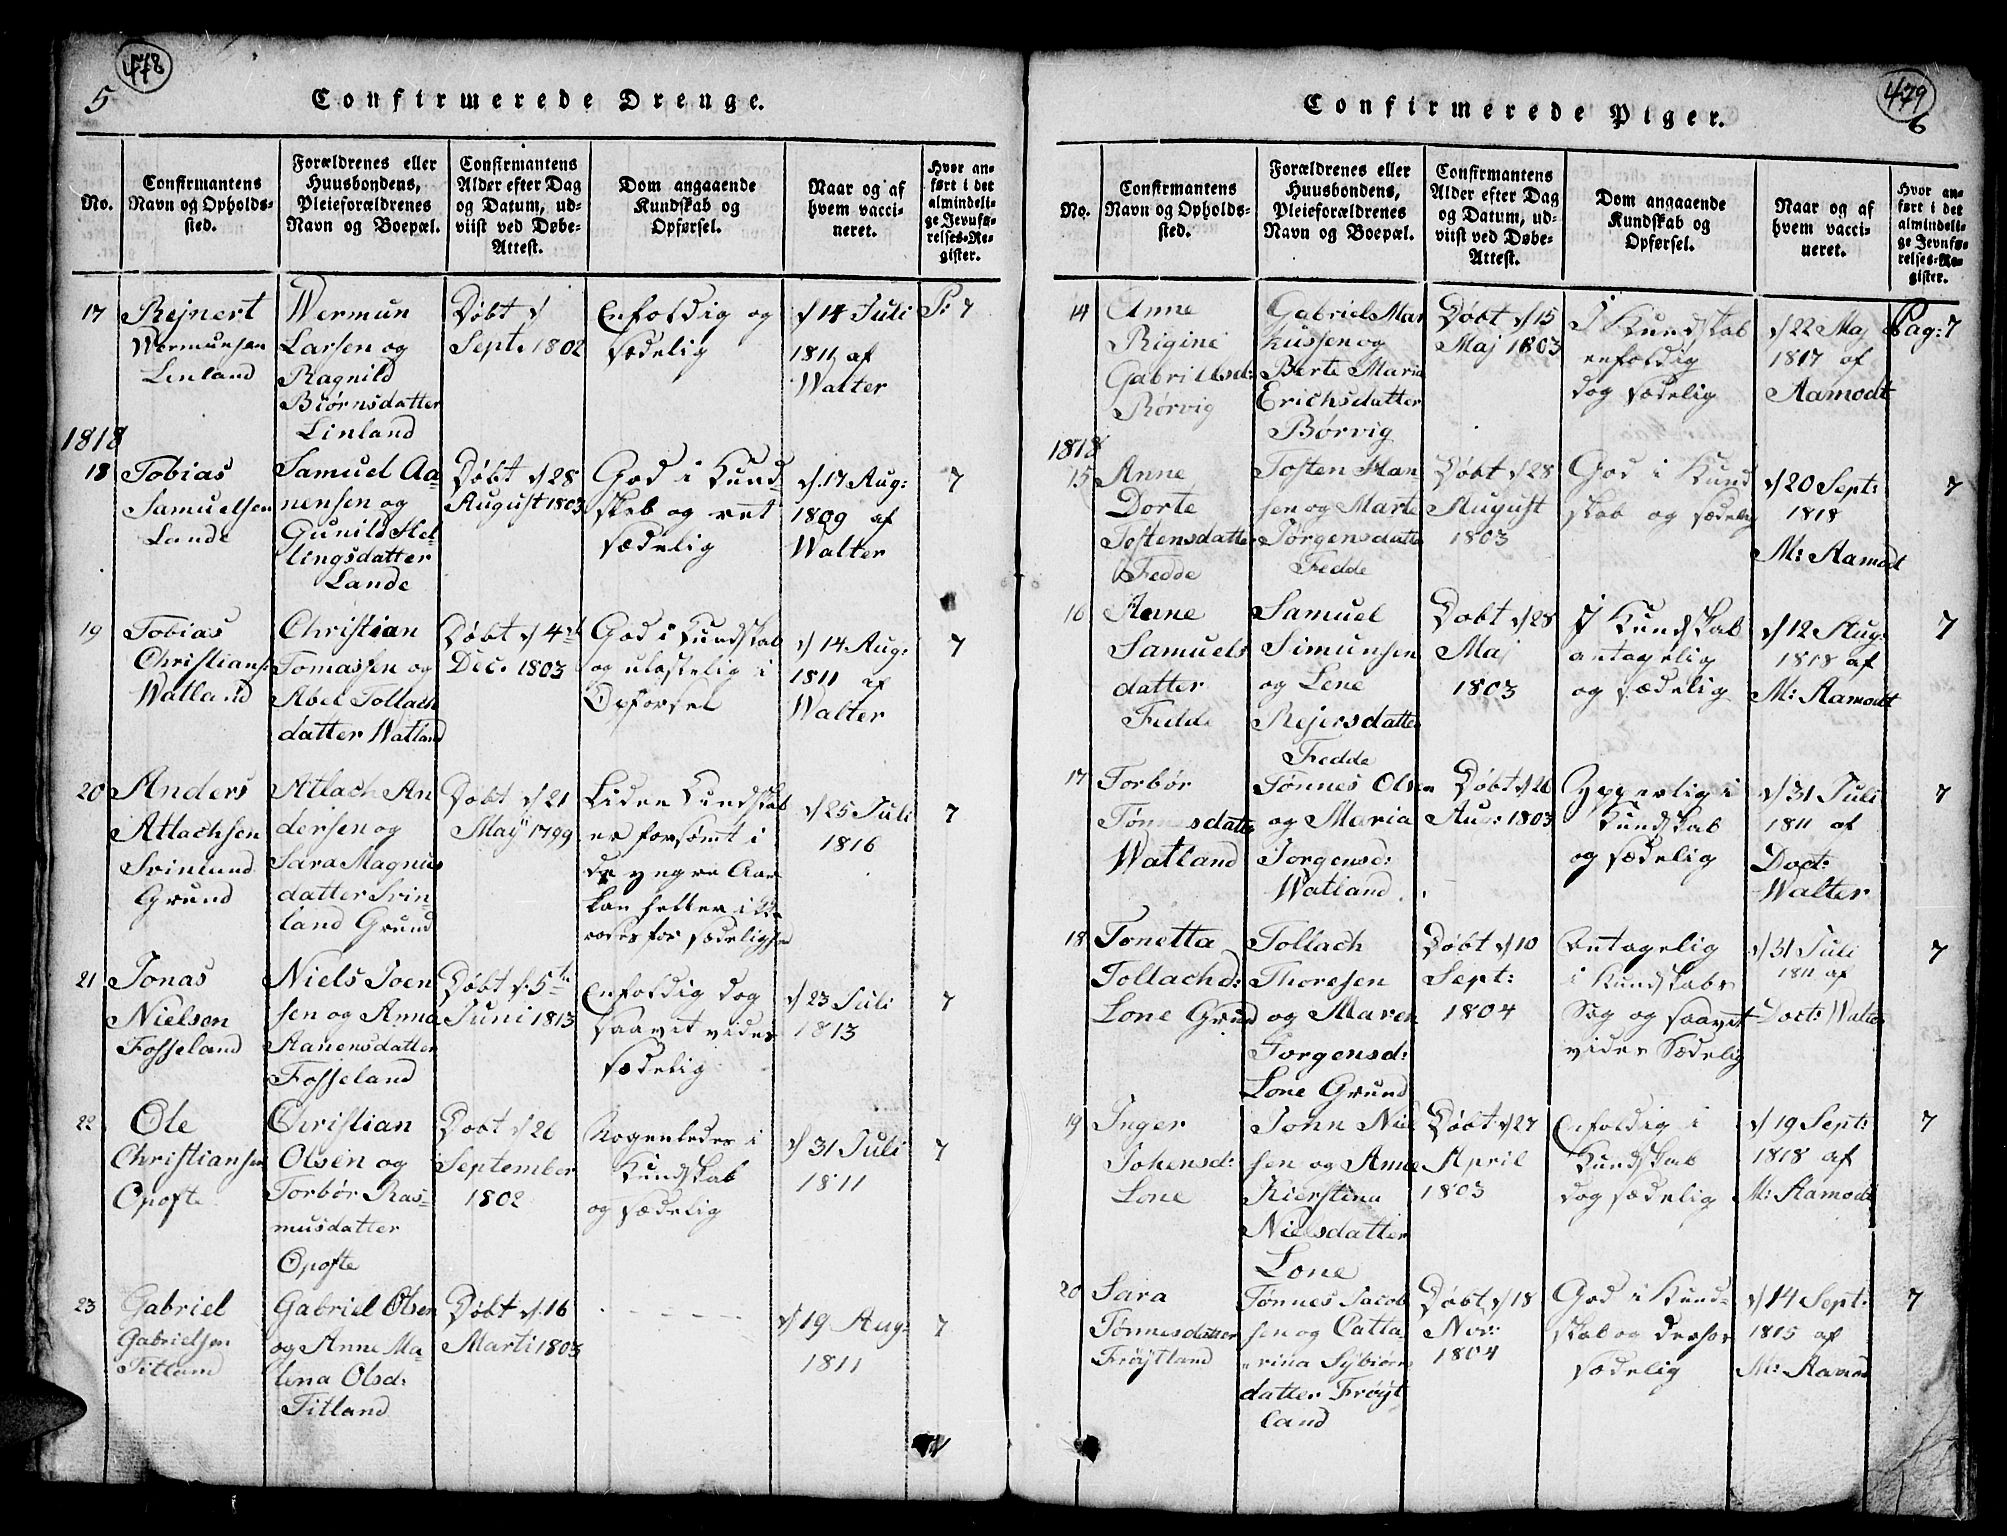 478
5
Confirmerede Drenge.
No.
Confirmantens
Navn og Opholds-
sted.
Forældrenes eller
Huusbondens,
Pleieforældrenes
Navn og Boepæl.
Confirmantens
Alder efter Dag
og Datum, ud-
viist ved Døbe-
Attest.
Dom angaaende
Kundskab og
Opførsel.
Naar og af
hvem vacci-
neret.
Hvor an-
ført i det
almindeli-
ge Jevnfø-
relses-Re-
gister.
17
Rejnert
Wermunsen
Linland
Wermun
Larsen og
Ragnild
Biørnsdatter
Linland
Døbt d
Sept. 1802
Enfoldig og
sædelig
d 14 Juli
1811 af
Walter
P: 7
1818
18
Tobias
Samuelsen
Lande
Samuel Aa-
nensen og
Gunild Hel-
lingsdatter
Lande
Døbt d 28
August 1803
God i Kund-
skab og ret
sædelig
d. 17 Aug:
1809 af
Walter
7
19
Tobias
Christians:
Watland
Christian
Tomassen og
Abel Tollach
datter Watland
Døbt d 4de
Dec. 1803
God i Kundskab
og ulastelig i
Opførsel
d 14 Aug:
1811 af
Walter
7
20
Anders
Atlachsen
Grund
Atlach An
dersen og
Sara Magnus
datter Srin-
land Grund
Døbt d 21
May 1799
Liden Kundskab
er forsømt i
de yngre Aar
kan heller ikke
roses for sædelighed
d 25 Juli
1816
7
21
Jonas
Nielsen
Fosseland
Niels Joen
sen og Anna
Aanensdatter
Fosseland
Døbt d. 5te
Juni 1813
Enfoldig dog
saavit vides
sædelig
d 23 Juli
1813
7
22
Ole
Christiansen
Opofte
Christian
Olsen og
Torbør Ras-
musdatter
Opofte
Døbt d 26
September
1802
Nogenledes i
Kundskab
og sædelig
d 31 Juli
1811
7
23
Gabriel
Gabrielsen
Titland
Gabriel Olsen
og Anne Ma-
lena Olsd:
Titland
Døbt d. 16
Marti 1803
d 19 Aug:
1811
7
479
6
Confirmerede Piger.
No.
Confirmantens
Navn og Opholds-
sted.
Forældrenes eller
Huusbondens,
Pleieforældrenes
Navn og Boepæl.
Confirmantens
Alder efter Dag
og Datum, ud-
viist ved Døbe-
Attest.
Dom angaaende
Kundskab og
Opførsel.
Naar og af
hvem vacci-
neret.
Hvor an-
ført i det
almindeli-
ge Jevnfø-
relses-Re-
gister.
14
Anne
Rigine
Gabrielsd:
Børvig
Gabriel Mar
kussen og
Berte Maria
Erichsdatter
Børvig
Døbt d 15
Maj 1803
I Kundskab
enfoldig
dog sædelig
d 22 Maj
1817 af
Aamodt
Pag: 7
1818
15
Anne
Dorte
Toftensdatter
Fedde
Toften Han
sen og Marte
Jørgensdatter
Fedde
Døbt d 28
August
1803
God i Kund
skab og sædelig
d 20 Sept:
1818
M: Aamodt
7
16
Anne
Samuels
datter
Fedde
Samuel
Simunsen
og Lene
Rejersdatter
Fedde
Døbt d 28
Maj
1803
I Kundskab
antagelig
og sædelig
d 12 Aug:
1818 af
M: Aamodt
7
17
Torbør
Tønnesdatter
Watland
Tønnes Olsen
og Maria
Jorgensd:
Watland
Døbt d 26
Au: 1803
Ypperlig i
Kundskab
og sædelig
d 31 Juli
1811 af
Doct:
Walter
7
18
Tonetta
Tollachd:
Lone Grund
Tollach
Thoresen
og Maren
Jorgensd:
Lone Grund
Døbt d 10
Sept:
1804
Antagelig
i Kundskabs
og saavit
vides Sædelig
d 31 Juli
1811 af
Doct: Walter
7
19
Inger
Johensd:
Lone
John Niel
sen og Anne
Kierstina
Nielsdatter
Lone
Døbt d 27
April
1803
Enfoldig i
Kundskab
dog sædelig
d 19 Sept:
1818 af
M: Aamodt
7
20
Sara
Tønnesdatter
Frøytland
Tønnes Jacob
sen og Catta
rina Sybiørns
datter Frøyt
land
Døbt d 18
Nov:
1804
God i Kund-
skab og derhos
sædelig
d 14 Sept:
1815 af
M: Aamodt
7